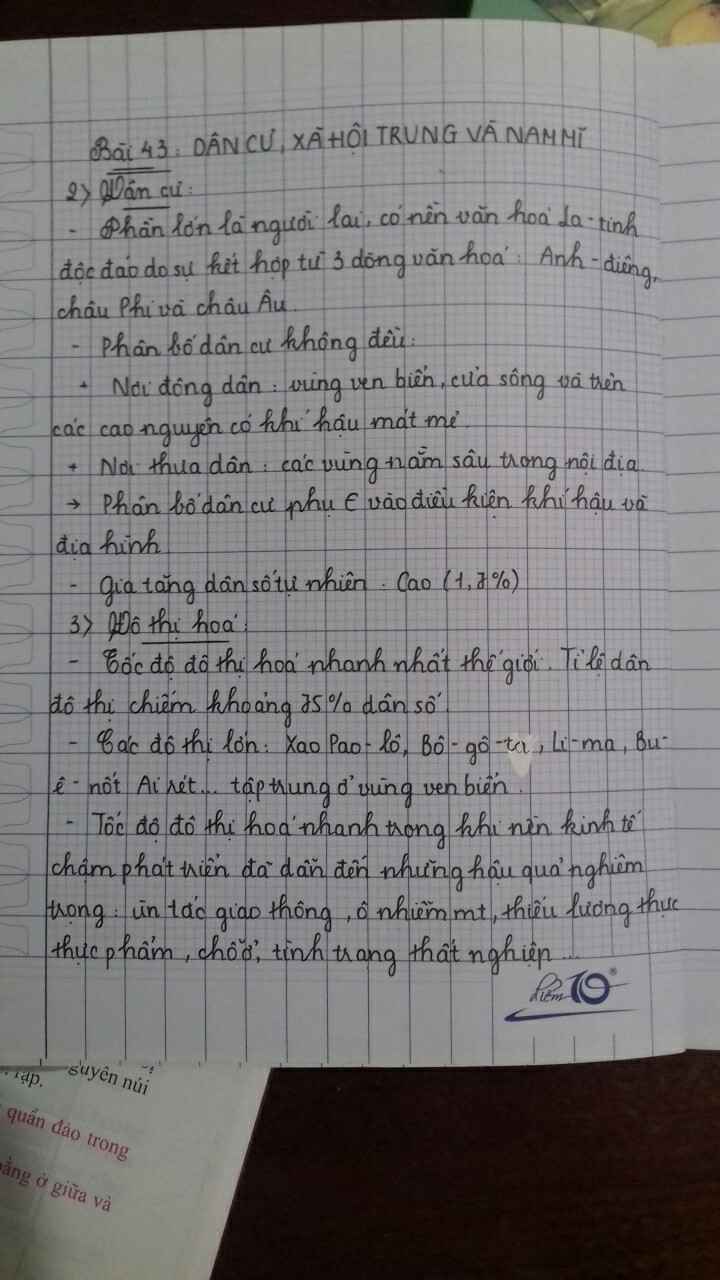 Bài 43: DÂN CƯ, XÃ HỘI TRUNG VÀ NAM MĨ
2) Dân cư:
- Phần lớn là người lai, có nền văn hoá La-tinh
độc đáo do sự kết hợp từ 3 dòng văn hoá: Anh-điêng,
châu Phi và châu Âu.
- Phân bố dân cư không đều:
+ Nơi đông dân: vùng ven biển, cửa sông và trên
các cao nguyên có khí hậu mát mẻ.
+ Nơi thưa dân: các vùng nằm sâu trong nội địa
→ Phân bố dân cư phụ ∈ vào điều kiện khí hậu và
địa hình
- Gia tăng dân số tự nhiên: Cao (1,7%)
3) Đô thị hoá:
- Tốc độ đô thị hoá nhanh nhất thế giới. Tỉ lệ dân
đô thị chiếm khoảng 75% dân số.
- Các đô thị lớn: Xao Pao-lô, Bô-gô-ta, Li-ma, Bu-
ê-nốt Ai rét... tập trung ở vùng ven biển.
- Tốc độ đô thị hoá nhanh trong khi nền kinh tế
chậm phát triển đã dẫn đến những hậu quả nghiêm
trọng: ùn tắc giao thông, ô nhiễm mt, thiếu lương thực
thực phẩm, chỗ ở, tình trạng thất nghiệp...
điểm 10
rập.
guyên núi
quần đảo trong
bằng ở giữa và